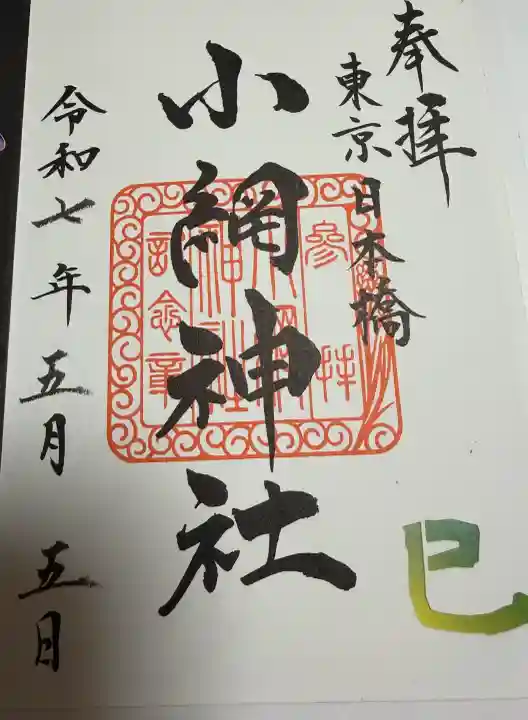 奉拝
東京日本橋
小網神社
令和七年五月五日
巳
参拝
小網
神社
記念章